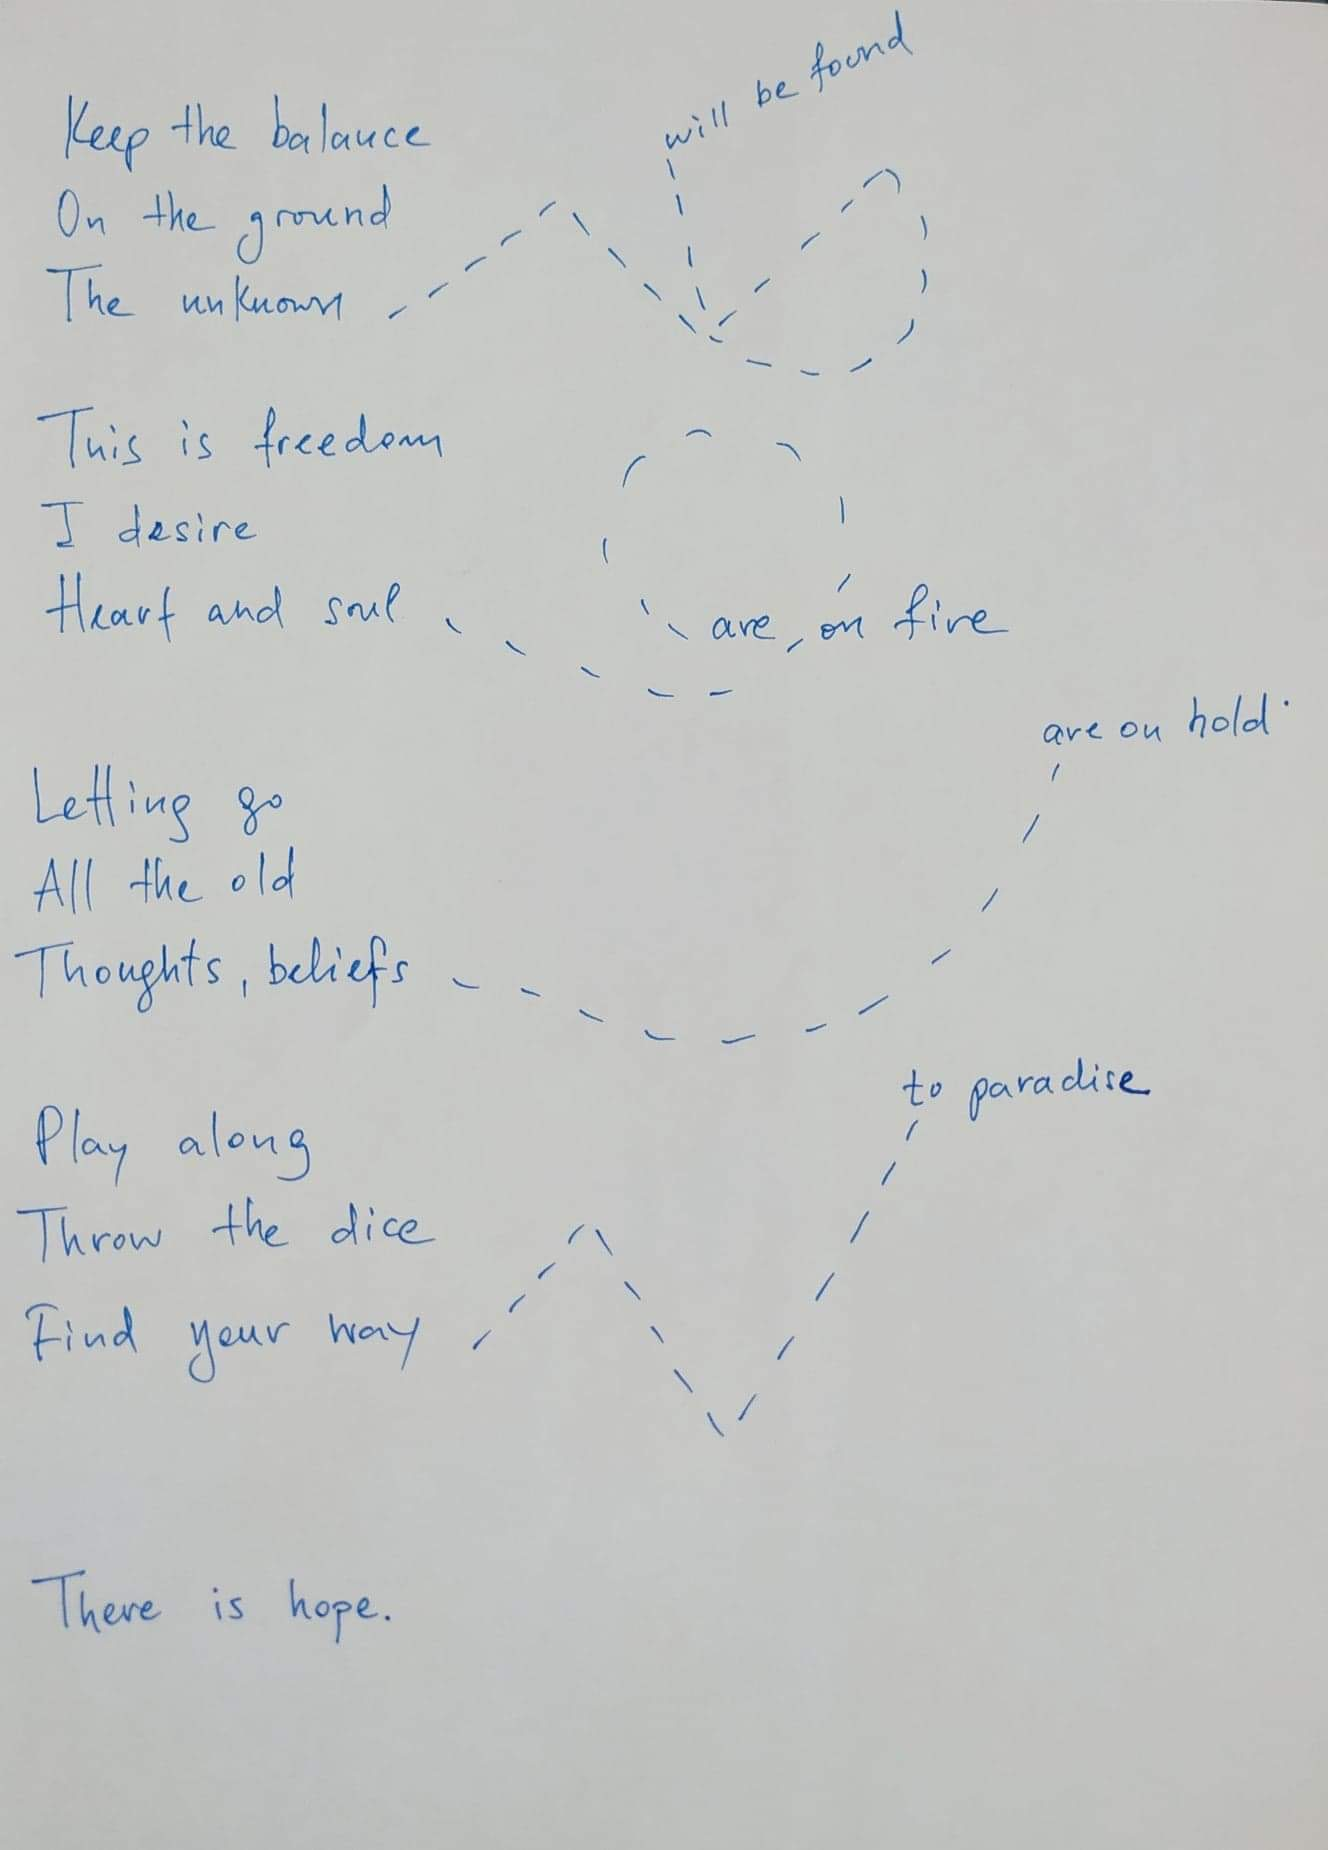 Keep the balance
On the ground
The unknown will be found
This is freedom
I desire
Heart and soul are on fire
Letting go
All the old
Thoughts, beliefs are on hold
Play along
Throw the dice
Find your way to paradise
There is hope.